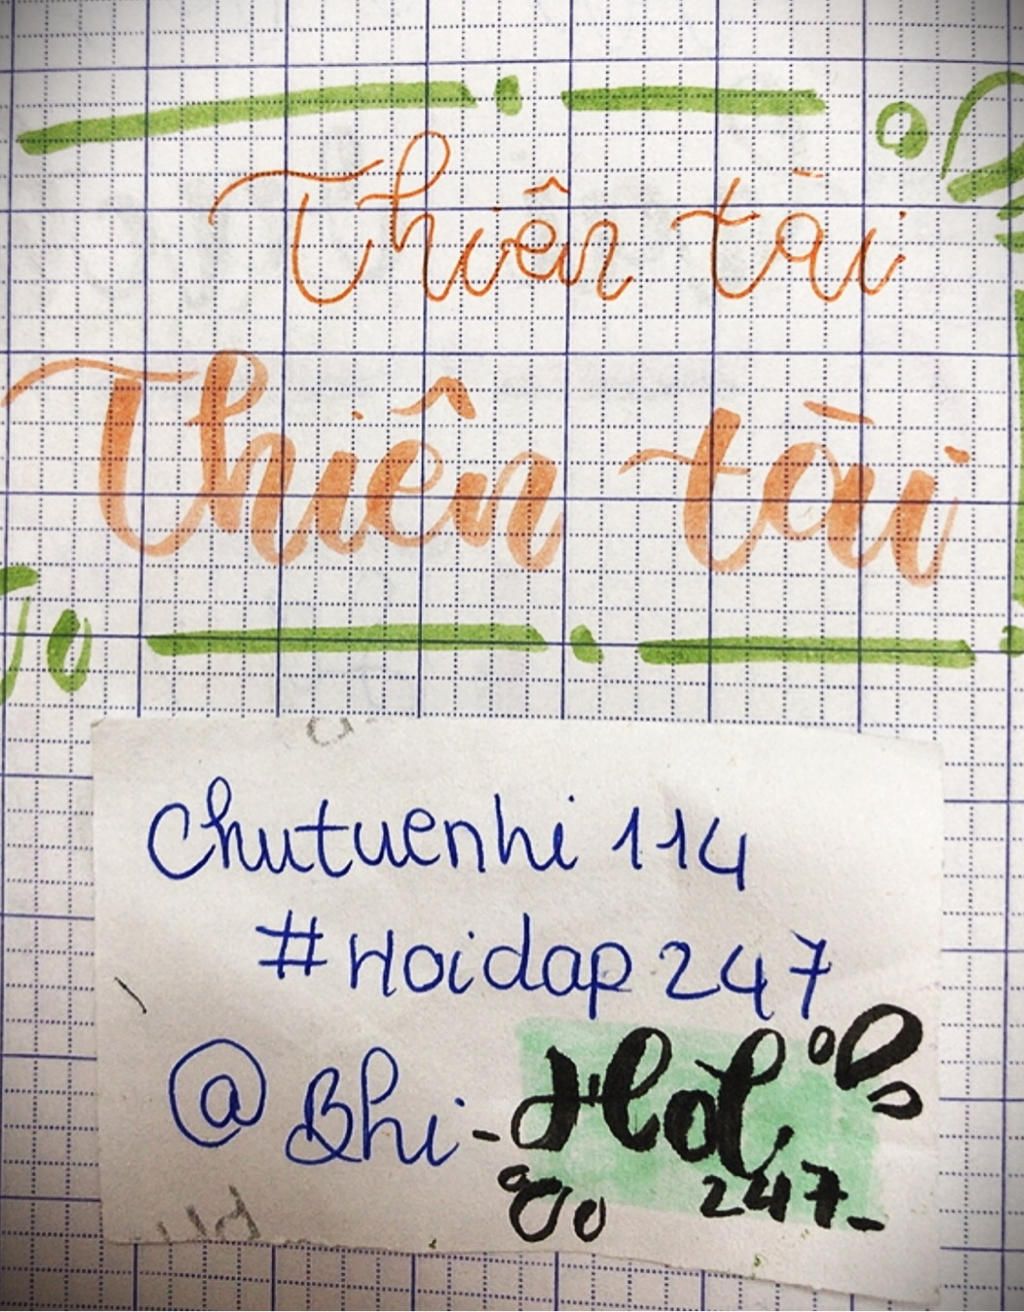 Thiên tài
Thiên tài
Chutuenhi 114
#Hoidap 247
@Bhi
247-